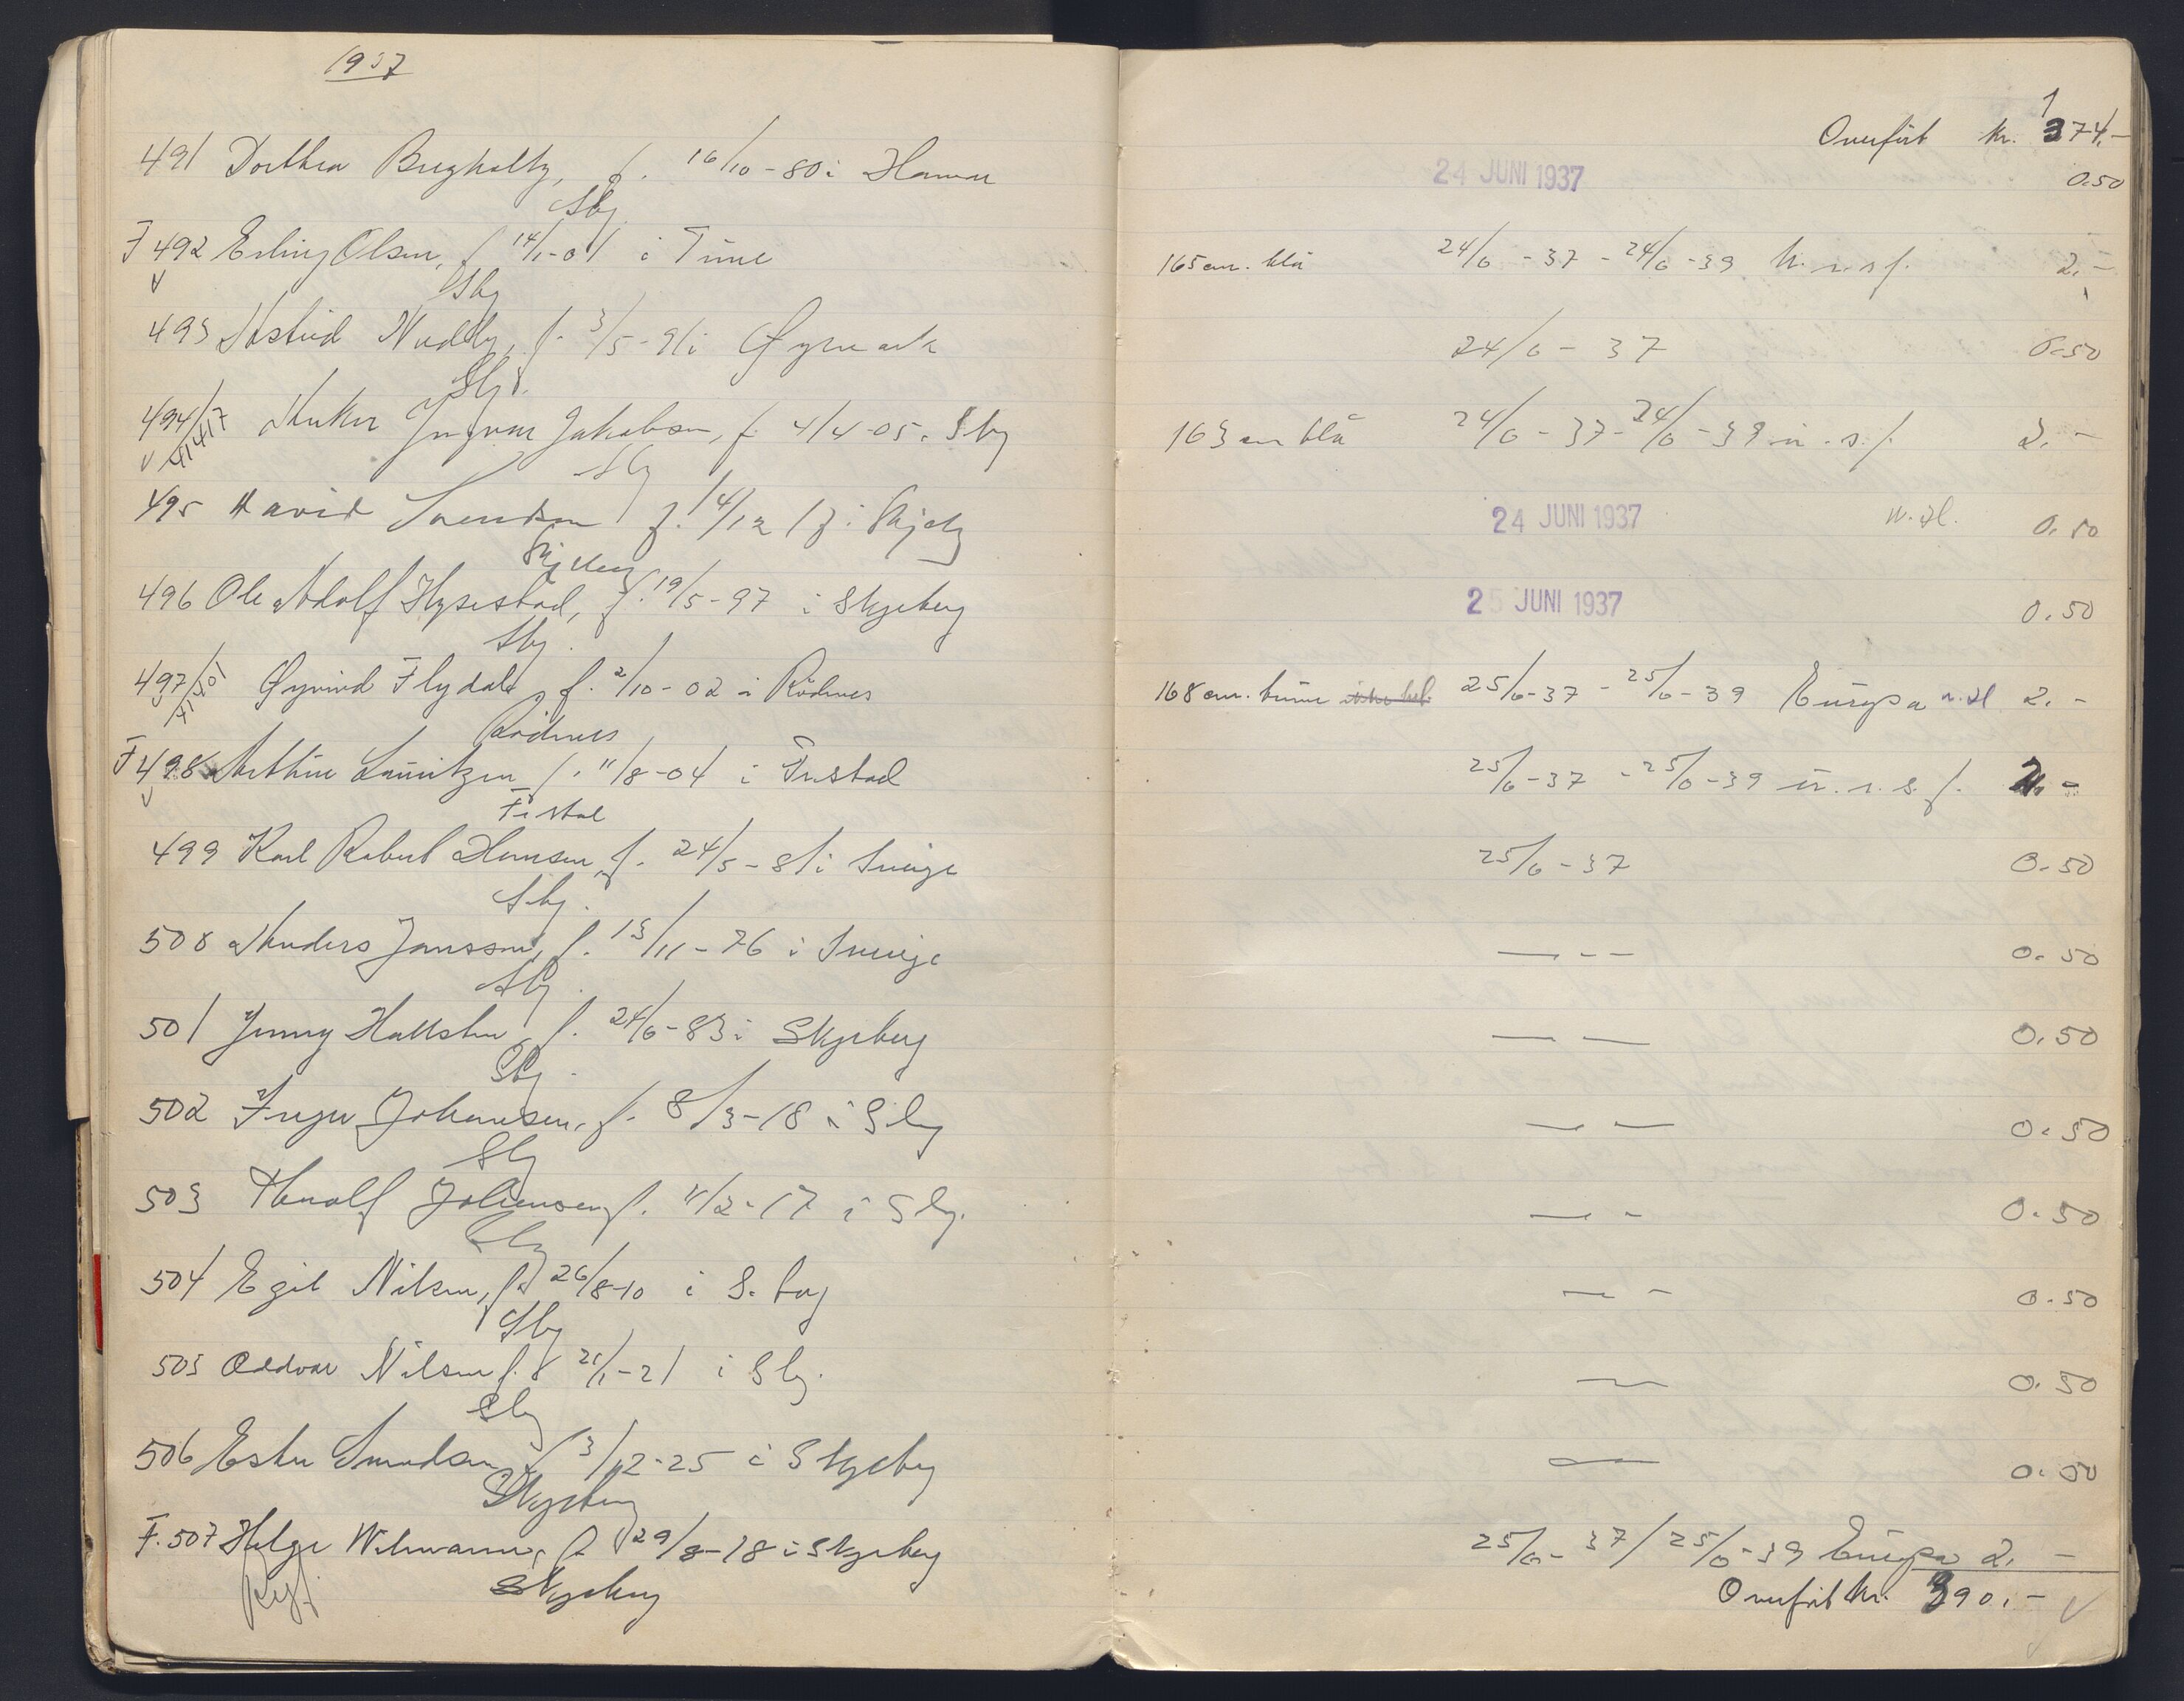 1937
491 Dorthea Bergholtz, f. 16/10-80 i Hamar
Sbg.
F 492 Erling Olsen, f 14/1-01 i Tune
Sbg
493 Astrid Nudly, f. 3/5-91 i Øymark
Sbg.
494/17 Anker Ingvar Jakobsen, f. 4/4-05 i Sbg
Sbg
495 David Svendsen f. 14/12 17 i Skjebg
Skjeberg
496 Ole Adolf Hysestad, f. 19/5-97 i Skjeberg
Sbg.
497 Øyvind Flydal, f. 2/10-02 i Rödnes
Rödnes
F 498 Arthur Lauritzen f. 11/8-04 i Fr.stad
Fr.stad
499 Karl Robert Hansen, f. 24/5-81 i Sverige
Sbg.
500 Anders Jansson, f. 13/11-76 i Sverige
Sbg.
501 Jenny Hallsten, f. 24/6-83 i Skjeberg
Sbg.
502 Johansen, f. 8/3-18 i Sbg
Sbg
503 Thoralf Johansen f. 11/2-17 i Sbg.
Sbg
504 Egil Nilsen, f. 26/8-10 i S.borg
Sbg
505 Oddvar Nilsen f. 21/1-21 i Sbg.
Sbg
506 Ester Svendsen f 3/12-25 i Skjeberg
Skjeberg
F. 507 Helge Wilmann, f. 29/8-18 i Skjeberg
Skjeberg
Overført kr. 174,-
24 JUNI 1937 0.50
165 cm. blå 24/6-37-24/6-39 u.n.s.f. 2.-
24/6-37 0.50
163 cm blå 24/6-37-24/6-39 u.s.f. 2.-
24 JUNI 1937 0.50
25 JUNI 1937 0.50
168 cm. brune 25/6-37-25/6-39 Europa 2.-
25/6-37-25/6-39 u.n.s.f. 2.-
25/6-37 0.50
— - - 0.50
— — 0.50
— — 0.50
— - 0.50
— - 0.50
— 0.50
— 0.50
25/6-37/25/6-39 Europa 2.-
Overført kr. 390.-